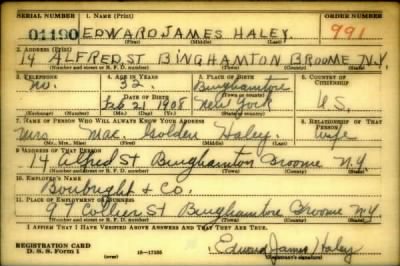 SERIAL NUMBER 1. NAME (Print) ORDER NUMBER
01190 EDWARD JAMES HALEY. 991
(First) (Middle) (Last)
2. ADDRESS (Print)
14 ALFRED ST BINGHAMTON BROOME N.Y
(Number and street or R. F. D. number) (Town) (County) (State)
3. TELEPHONE 4. AGE IN YEARS 5. PLACE OF BIRTH 6. COUNTRY OF CITIZENSHIP
no. 32. Binghamton
DATE OF BIRTH (Town or county)
Feb 21 1908 New York U.S.
(Exchange) (Number) (Mo.) (Day) (Yr.) (State or country)
7. NAME OF PERSON WHO WILL ALWAYS KNOW YOUR ADDRESS 8. RELATIONSHIP OF THAT PERSON
Mrs Mae Golden Haley. wife
(Mr., Mrs., Miss) (First) (Middle) (Last)
9. ADDRESS OF THAT PERSON
14 Alfred St Binghamton Broome N.Y.
(Number and street or R. F. D. number) (Town) (County) (State)
10. EMPLOYER'S NAME
& Co.
11. PLACE OF EMPLOYMENT OR BUSINESS
97 Collier St Binghamton Broome N.Y
(Number and street or R. F. D. number) (Town) (County) (State)
I AFFIRM THAT I HAVE VERIFIED ABOVE ANSWERS AND THAT THEY ARE TRUE.
REGISTRATION CARD
D. S. S. Form 1 16-17105 Edward James Haley
(Registrant's signature)